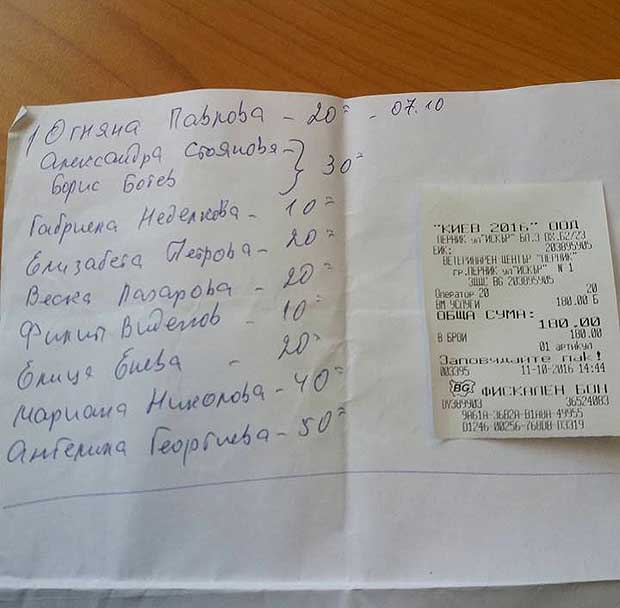 1 Огняна Павлова - 20= - 07.10
Александра Стоянова -
Борис Ботев
30=
Габриела Неделкова - 10=
Елизабета Петрова - 20=
Веска Лазарова - 20=
Филип Виденов - 10=
Елица Енева - 20=
Мариана Николова - 40=
Ангелина Георгиева - 50=
"КИЕВ 2016" ООД
ПЕРНИК ул"ИСКЪР" БЛ.3 ВХ.Б2/23
ЕИК: 203895905
ВЕТЕРИНАРЕН ЦЕНТЪР "ПЕРНИК"
гр.ПЕРНИК ул"ИСКЪР" N 1
ЗДДС BG 203895905
Оператор 20 20
ВМ УСЛУГИ 180.00 Б
ОБЩА СУМА:
180.00
В БРОЙ 180.00
01 артикул
Заповядайте пак!
003395 11-10-2016 14:44
BG ФИСКАЛЕН БОН
DY389903 36524083